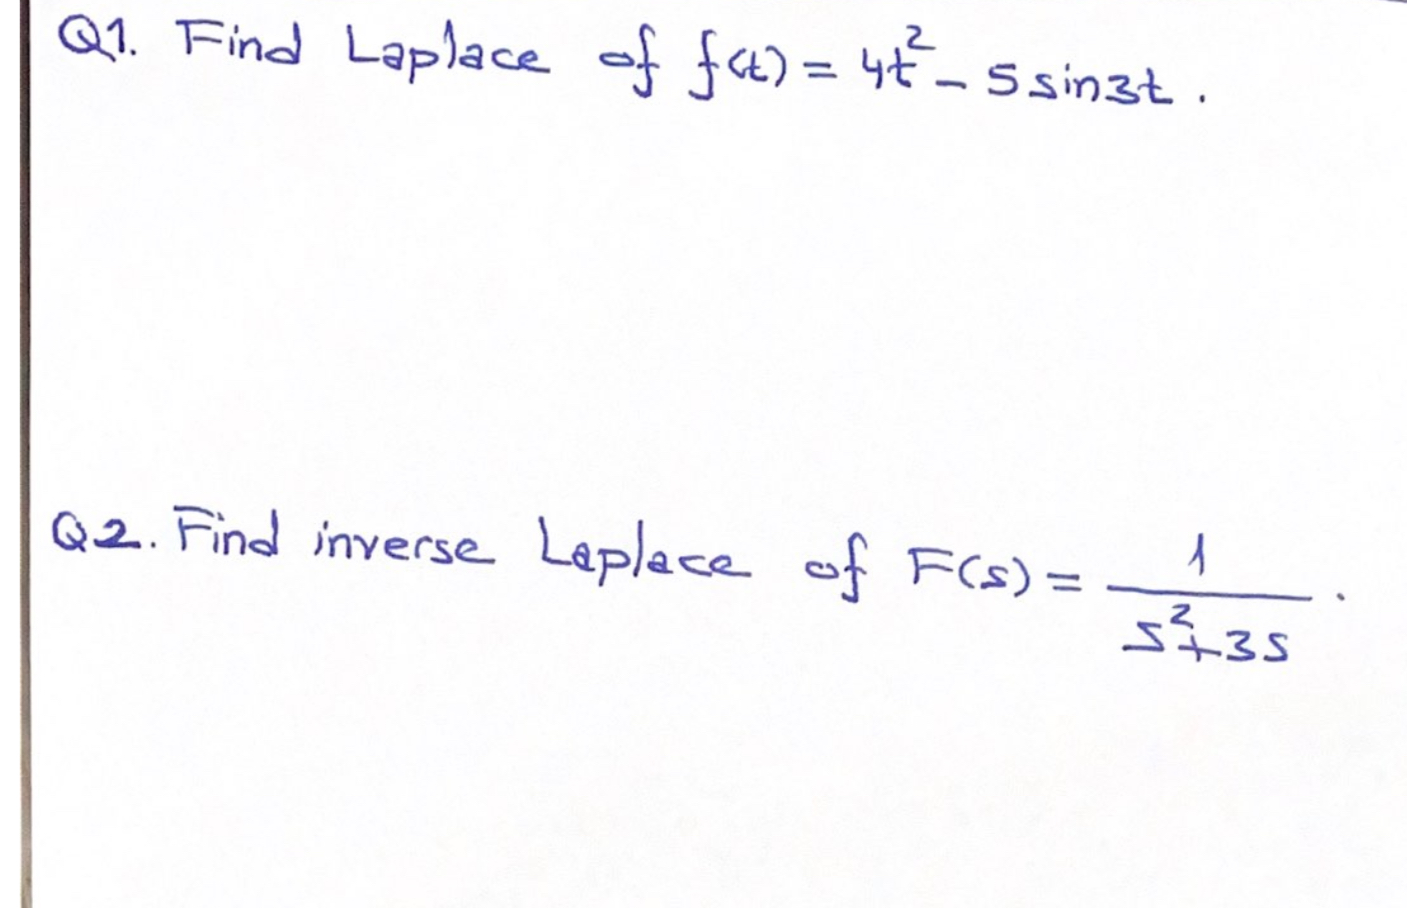 Q1. Find Laplace of f(t) = 4t² - 5 sin3t.
Q2. Find inverse Laplace of F(s) = 1/(s²+3s).